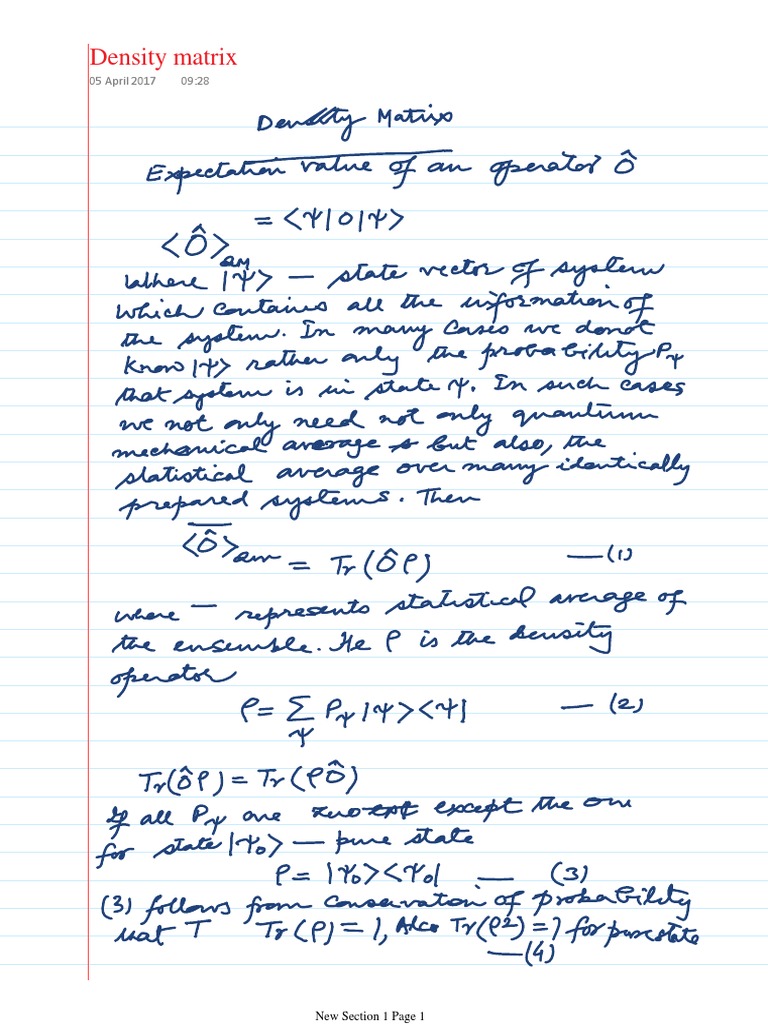 Density matrix
05 April 2017 09:28
Density Matrix
Expectation value of an operator Ô
= <Ψ|O|Ψ>
<Ô>
QM
Where |Ψ> — state vector of system
which contains all the information of
the system. In many cases we donot
know |Ψ> rather only the probability P_Ψ
that system is in state Ψ. In such cases
we not only need not only quantum
mechanical average but also, the
statistical average over many identically
prepared systems. Then
<Ô> = Tr(Ôρ) —(1)
where — represents statistical average of
the ensemble. He ρ is the density
operator
ρ = Σ_Ψ P_Ψ |Ψ><Ψ| — (2)
Tr(Ôρ) = Tr(ρÔ)
If all P_Ψ are zero except the one
for state |Ψ₀> — pure state
ρ = |Ψ₀><Ψ₀| — (3)
(3) follows from conservation of probability
that T Tr(ρ) = 1, Also Tr(ρ²) = 1 for pure state
—(4)
New Section 1 Page 1